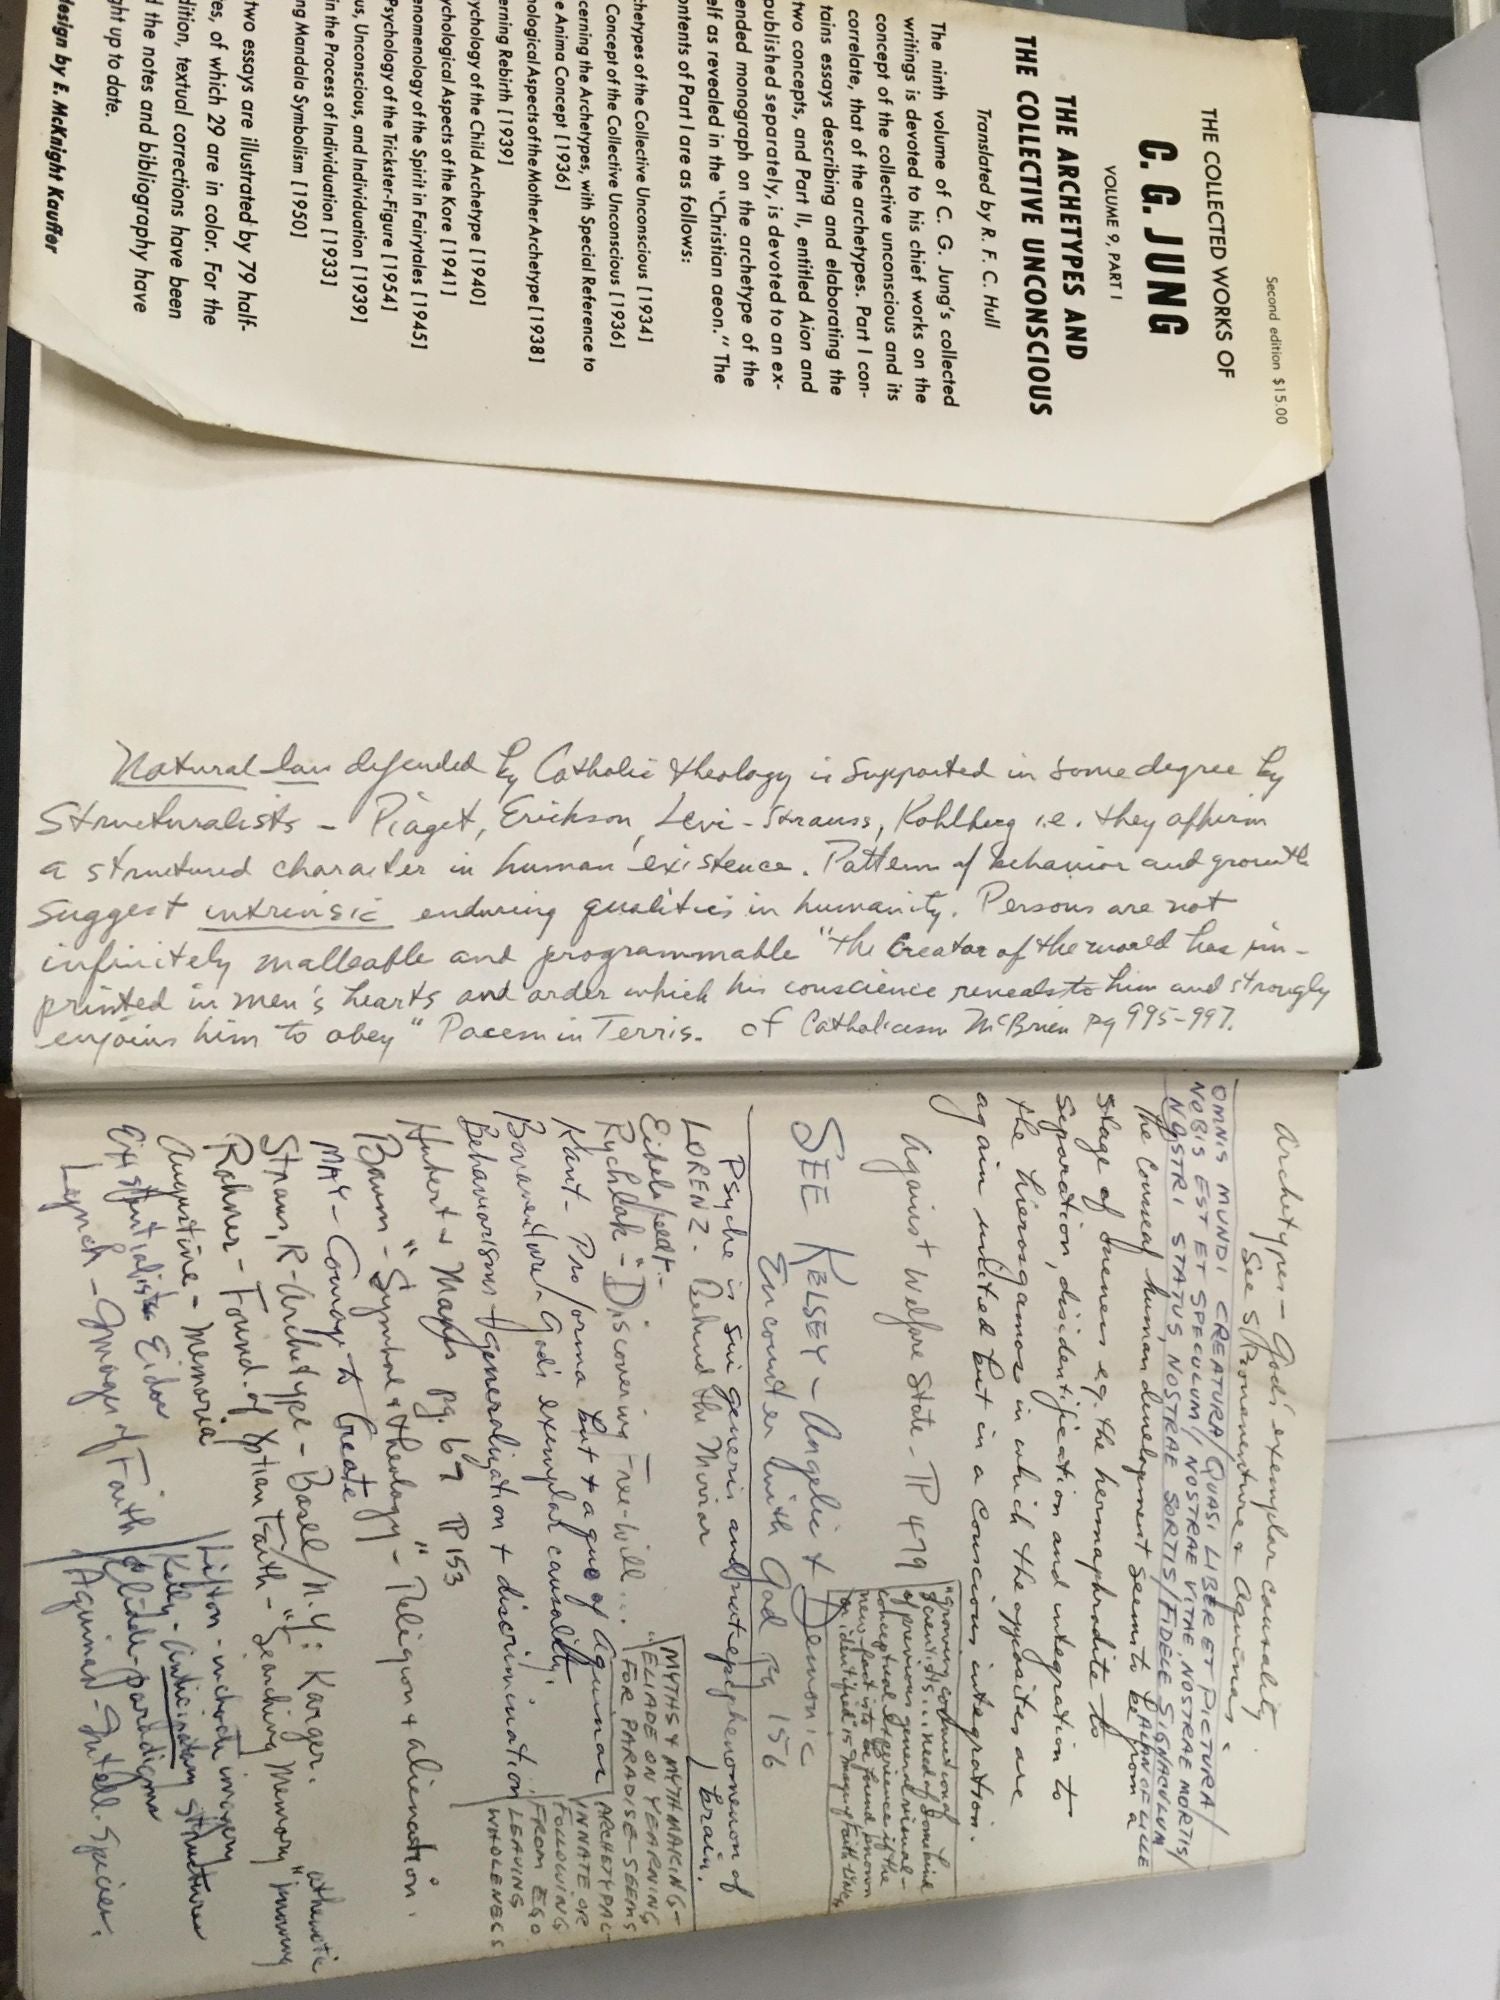 Second edition $15.00
THE COLLECTED WORKS OF
C. G. JUNG
VOLUME 9, PART I
THE ARCHETYPES AND
THE COLLECTIVE UNCONSCIOUS
Translated by R. F. C. Hull
The ninth volume of C. G. Jung's collected
writings is devoted to his chief works on the
concept of the collective unconscious and its
correlate, that of the archetypes. Part I con-
tains essays describing and elaborating the
two concepts, and Part II, entitled Aion and
published separately, is devoted to an ex-
ended monograph on the archetype of the
elf as revealed in the "Christian aeon." The
ontents of Part I are as follows:
chetypes of the Collective Unconscious [1934]
Concept of the Collective Unconscious [1936]
cerning the Archetypes, with Special Reference to
e Anima Concept [1936]
hological Aspects of the Mother Archetype [1938]
erning Rebirth [1939]
ychology of the Child Archetype [1940]
ychological Aspects of the Kore [1941]
enomenology of the Spirit in Fairytales [1945]
Psychology of the Trickster-Figure [1954]
us, Unconscious, and Individuation [1939]
in the Process of Individuation [1933]
ng Mandala Symbolism [1950]
two essays are illustrated by 79 half-
es, of which 29 are in color. For the
dition, textual corrections have been
d the notes and bibliography have
ght up to date.
design by E. McKnight Kauffer
Natural law defended by Catholic theology is supported in some degree by
Structuralists - Piaget, Erickson, Levi-Strauss, Kohlberg i.e. they affirm
a structured character in human existence. Pattern of behavior and growth
suggest intrinsic enduring qualities in humanity. Persons are not
infinitely malleable and programmable "the Creator of the world has im-
printed in men's hearts and order which his conscience reveals to him and strongly
enjoins him to obey" Pacem in Terris. cf Catholicism McBrien pg 995-997.
Archetypes - God's exemplar causality
See S/Bonaventure & Aquinas
OMNIS MUNDI CREATURA/ QUASI LIBER ET PICTURA/
NOBIS EST ET SPECULUM// NOSTRAE VITAE, NOSTRAE MORTIS/
NOSTRI STATUS, NOSTRAE SORTIS/ FIDELE SIGNACULUM
ALAN DE LILLE
The course of human development seems to be from a
stage of oneness eg. the hermaphrodite to
separation, disidentification and integration to
the hierosgamos in which the opposites are
again united but in a conscious integration.
against Welfare State - P 479
"growing conviction of
scientists... need of
of previous general visual-
conceptual experience if the
new fact is to be found, known
or identified"
SEE KELSEY - Angelic & Demonic
Encounter with God pg 156
Psyche is sui generis and not epiphenomenon of
brain.
LORENZ - Behind the Mirror
Eibelsfeldt -
Rychlak - "Discovering Free-will...
Kant - Pro forma but + a quo of Aquinas
Bonaventure - God's exemplar causality
Behaviorisms + generalization + discrimination
MYTHS & MYTHMAKING -
"ELIADE ON YEARNING
FOR PARADISE - SEEMS
ARCHETYPAL -
INNATE OR
FOLLOWING
FROM EGO
LEAVING
WHOLENESS
Hubert & Mauss pg. 67 P 153
Baum - "Symbol & theology" - Religion & alienation.
MAY - Courage to Create
Straus, R - Archetype - Basel/N.Y: Karger.
Rahner - Found. of Xtian Faith - "Searching Memory"
Augustine - Memoria
Existentialists Eidos
Lynch - Images of Faith
Lifton - inchoate imagery
Kelly - Anticipatory structures
Eliade - paradigms
Aquinas - Intell. Species.